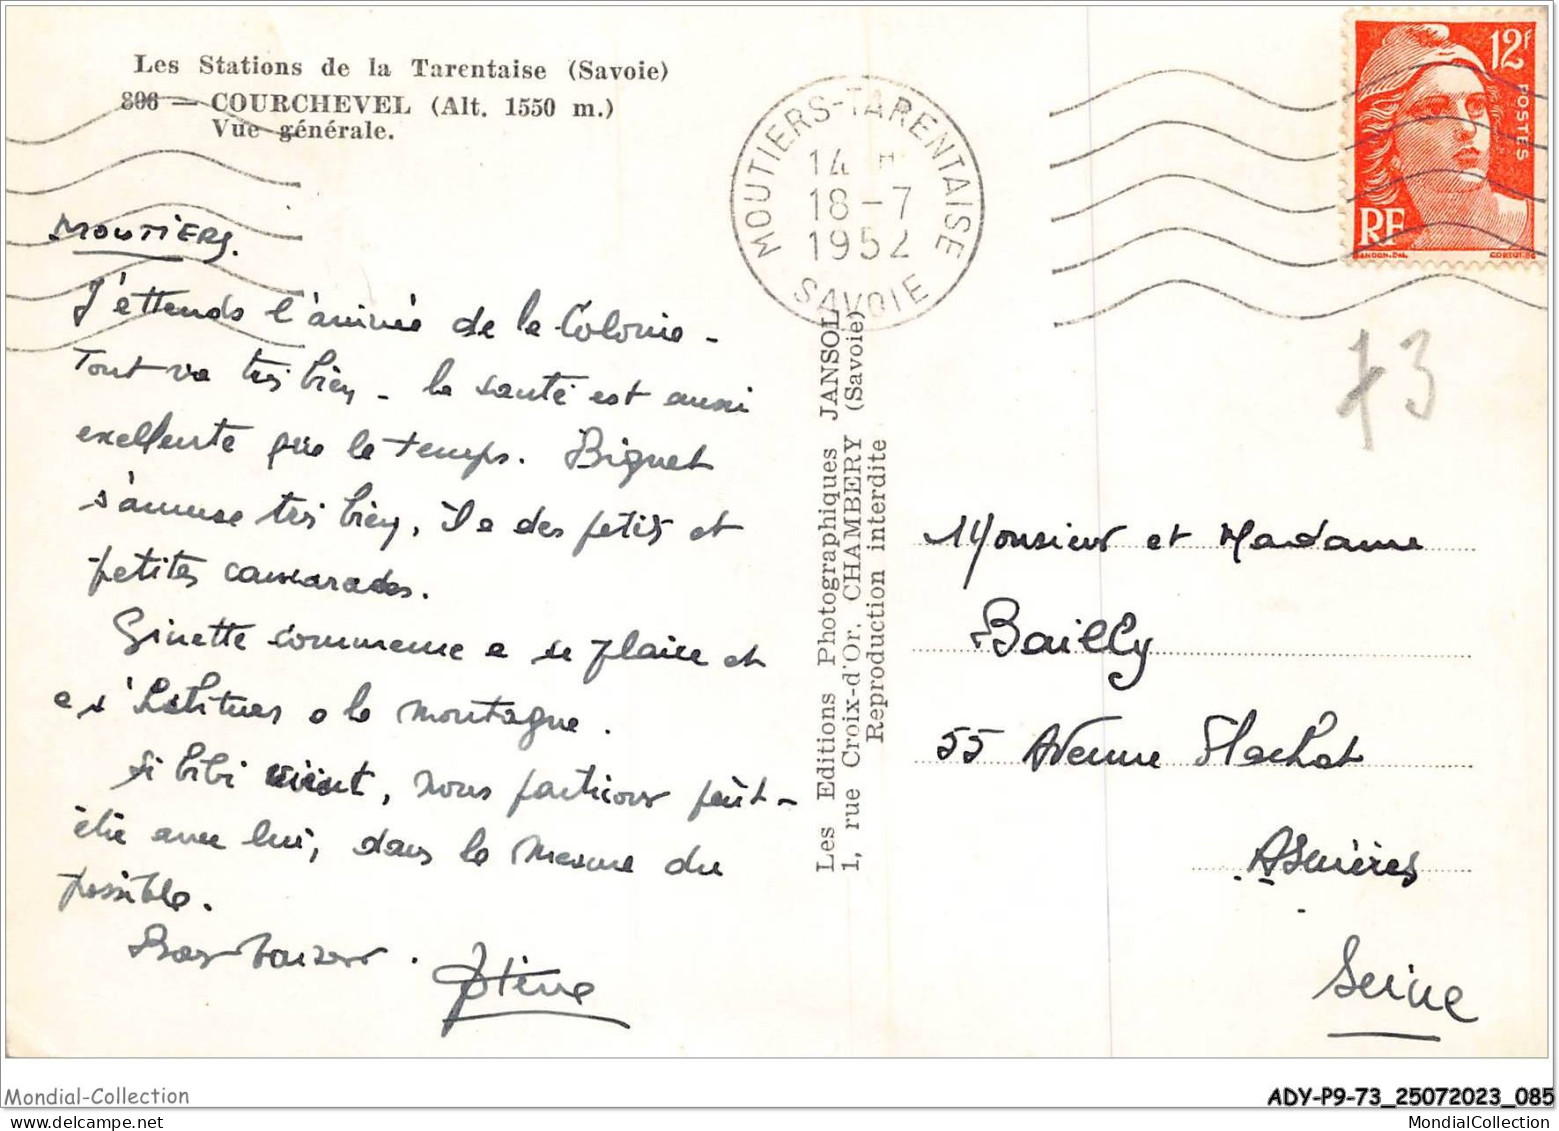 Les Stations de la Tarentaise (Savoie)
806 — COURCHEVEL (Alt. 1550 m.)
Vue générale.
MOUTIERS-TARENTAISE
14 H
18-7
1952
SAVOIE
12F
POSTES
RF
GANDON-DEL
CORTOT-SC
MOUTIERS.
J'attends l'arrivée de la Colonie -
Tout va très bien - la santé est aussi
excellente que le temps. Biquet
s'amuse très bien, il a des petits et
petites camarades.
Ginette commence a se plaire et
a s'habituer a la montagne.
Si bibi vient, nous partirons peut-
être avec lui, dans la mesure du
possible.
Bons baisers.
Les Editions Photographiques JANSOL
1, rue Croix-d'Or, CHAMBERY (Savoie)
Reproduction interdite
73
Monsieur et Madame
Bailly
55 Avenue Flachat
Asnières
Seine
Mondial-Collection
ADY-P9-73_25072023_085
MondialCollection